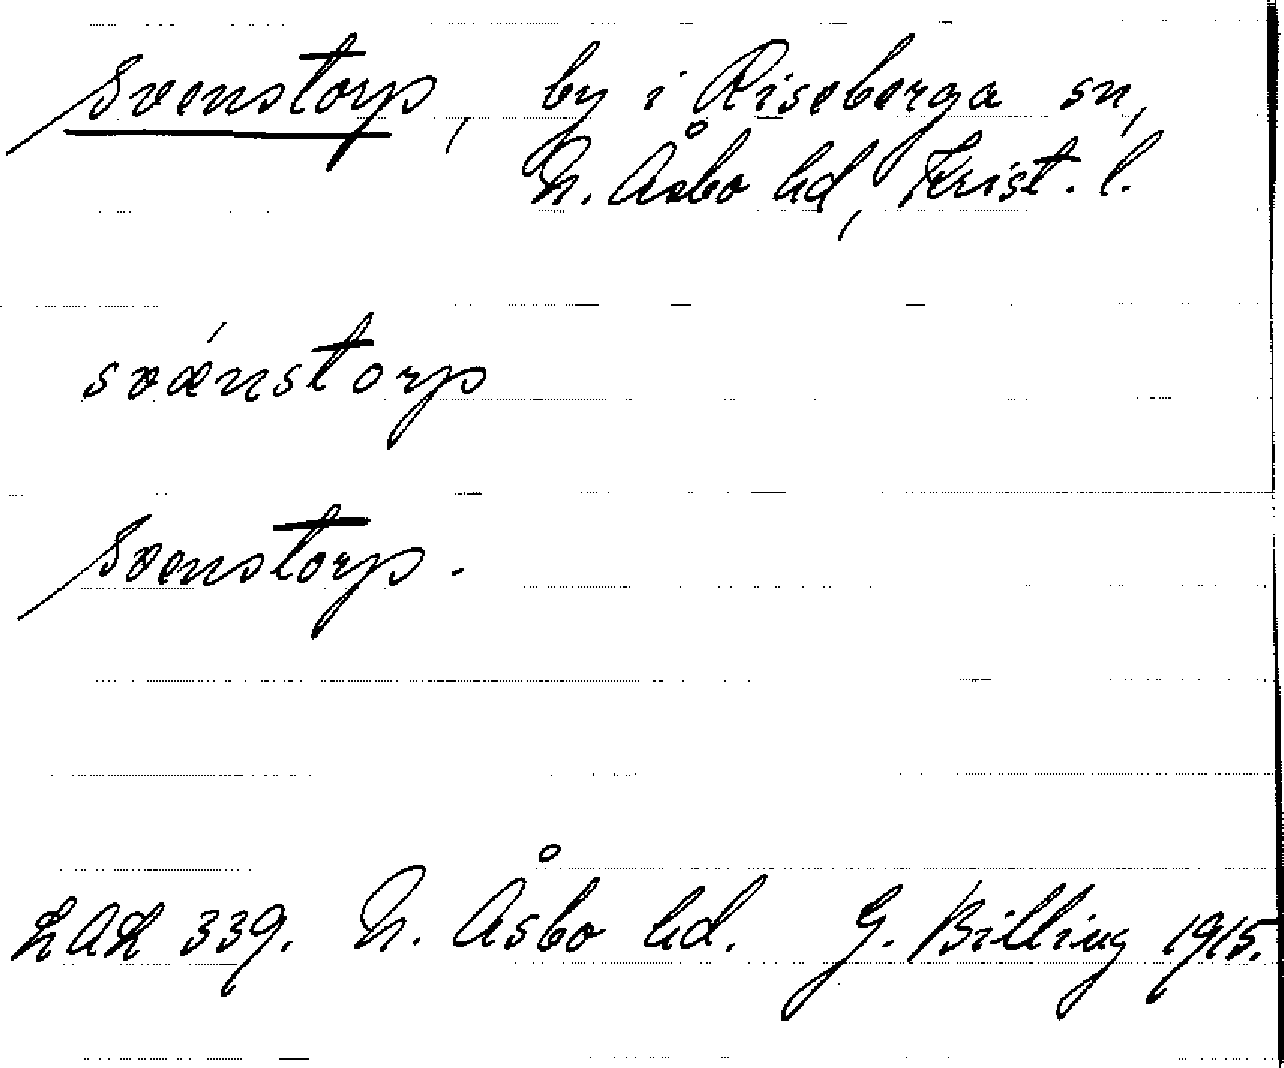 Svenstorp, by i Riseberga sn,
N. Åsbo hd, Krist. l.
svǽnstorp
Svenstorp.
LAL 339. N. Åsbo hd. G. Billing 1915.